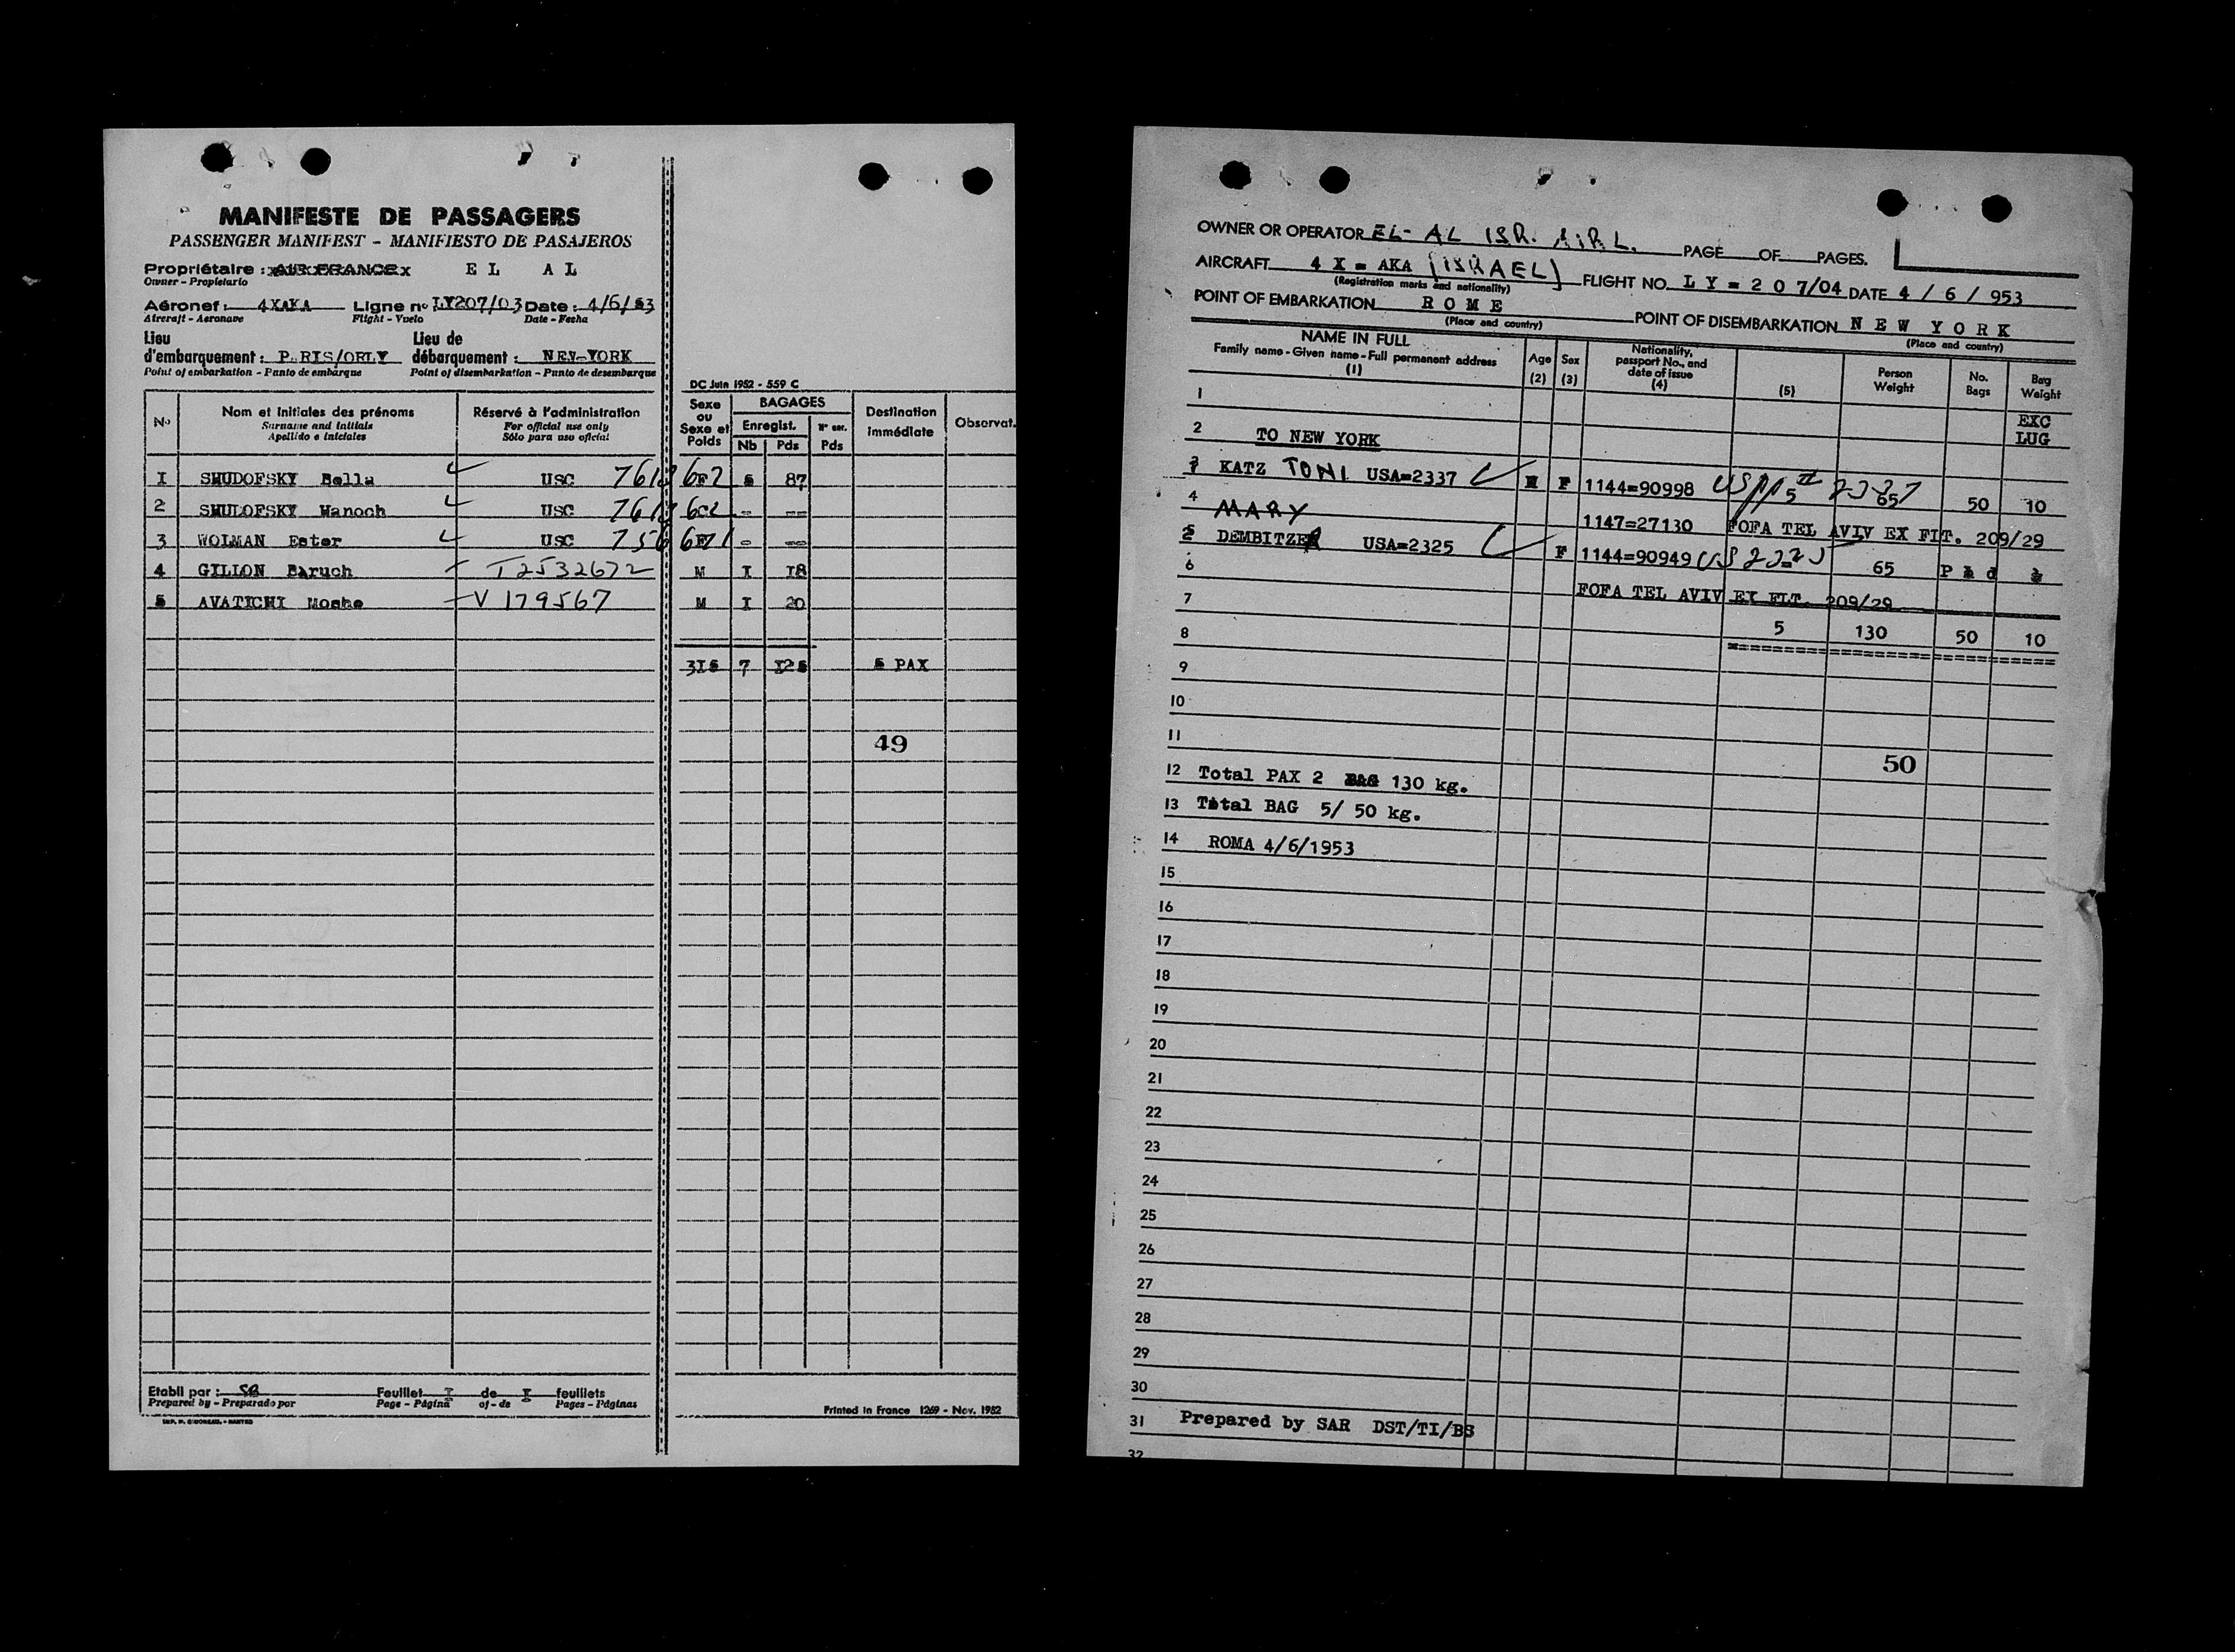 MANIFESTE DE PASSAGERS
PASSENGER MANIFEST - MANIFIESTO DE PASAJEROS
Propriétaire : xAIRxFRANCEx E L A L
Owner - Propietario
Aéronef : 4XAKA Ligne nº LY207/03 Date : 4/6/53
Aircraft - Aeronave Flight - Vuelo Date - Fecha
Lieu d'embarquement : PARIS/ORLY Lieu de débarquement : NEW-YORK
Point of embarkation - Punto de embarque Point of disembarkation - Punto de desembarque
DC Juin 1952 - 559 C
Nº Nom et initiales des prénoms Réservé à l'administration Sexe ou Sexe et Poids BAGAGES Destination immédiate Observat.
Surname and initials For official use only Enregist. Nº enr.
Apellido e iniciales Sólo para uso oficial Nb Pds Pds
1 SHUDOFSKY Bella USC 7613 662 F 5 87
2 SHUDOFSKY Hanoch USC 7613 662 - --
3 WOLMAN Ester USC 756 671 F - --
4 GILLON Baruch T2532672 M I I8
5 AVATICHI Moshe V 179567 M I 20
3I5 7 I25 5 PAX
49
Etabli par : Feuillet I de I feuillets
Prepared by - Preparado por Page - Página of - de Pages - Páginas
Printed in France 1269 - Nov. 1952
OWNER OR OPERATOR EL-AL ISR. AIRL. PAGE OF PAGES.
AIRCRAFT 4 X = AKA (ISRAEL) FLIGHT NO. L Y = 2 0 7/04 DATE 4 / 6 / 953
(Registration marks and nationality)
POINT OF EMBARKATION R O M E POINT OF DISEMBARKATION N E W Y O R K
(Place and country) (Place and country)
NAME IN FULL
Family name - Given name - Full permanent address
(1)
Age (2) Sex (3) Nationality, passport No., and date of issue (4) (5) Person Weight No. Bags Bag Weight
1 EXC LUG
2 TO NEW YORK
3 KATZ TONI USA=2337 F 1144=90998 US pp 2337 5 65 50 10
4 MARY 1147=27130 FOFA TEL AVIV EX FLT. 209/29
5 DEMBITZER USA=2325 F 1144=90949 US 2325 65
6 FOFA TEL AVIV EX FLT. 209/29
7
8 5 130 50 10
9
10
11 50
12 Total PAX 2 BAG 130 kg.
13 Total BAG 5/ 50 kg.
14 ROMA 4/6/1953
15
16
17
18
19
20
21
22
23
24
25
26
27
28
29
30
31 Prepared by SAR DST/TI/BS
32